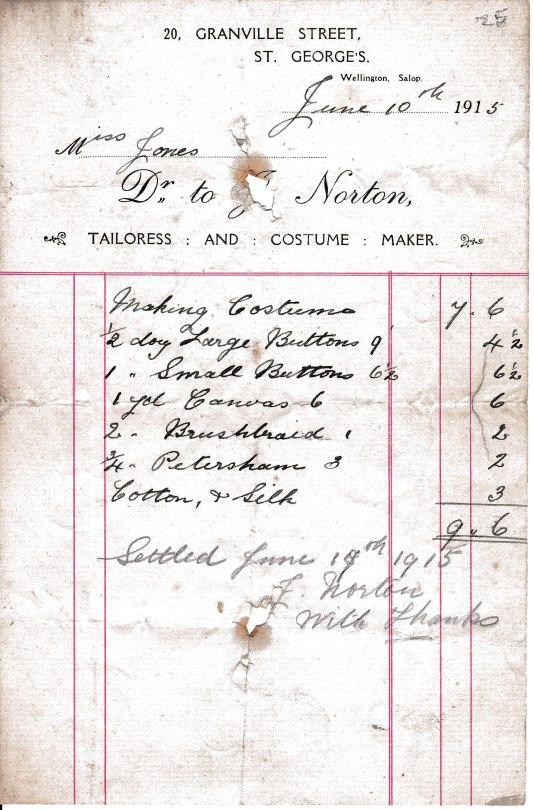 25
20, GRANVILLE STREET,
ST. GEORGE'S.
Wellington, Salop.
June 10th 1915
Miss Jones
Dr. to J Norton,
TAILORESS : AND : COSTUME : MAKER.
Making Costume 7. 6
½ doz Large Buttons 9 4½
1 " Small Buttons 6½ 6½
1 yd Canvas 6 6
2 " Brushbraid 1 2
¾ " Petersham 3 2
Cotton, & Silk 3
9 " 6
Settled June 1915
J. Norton
With Thanks